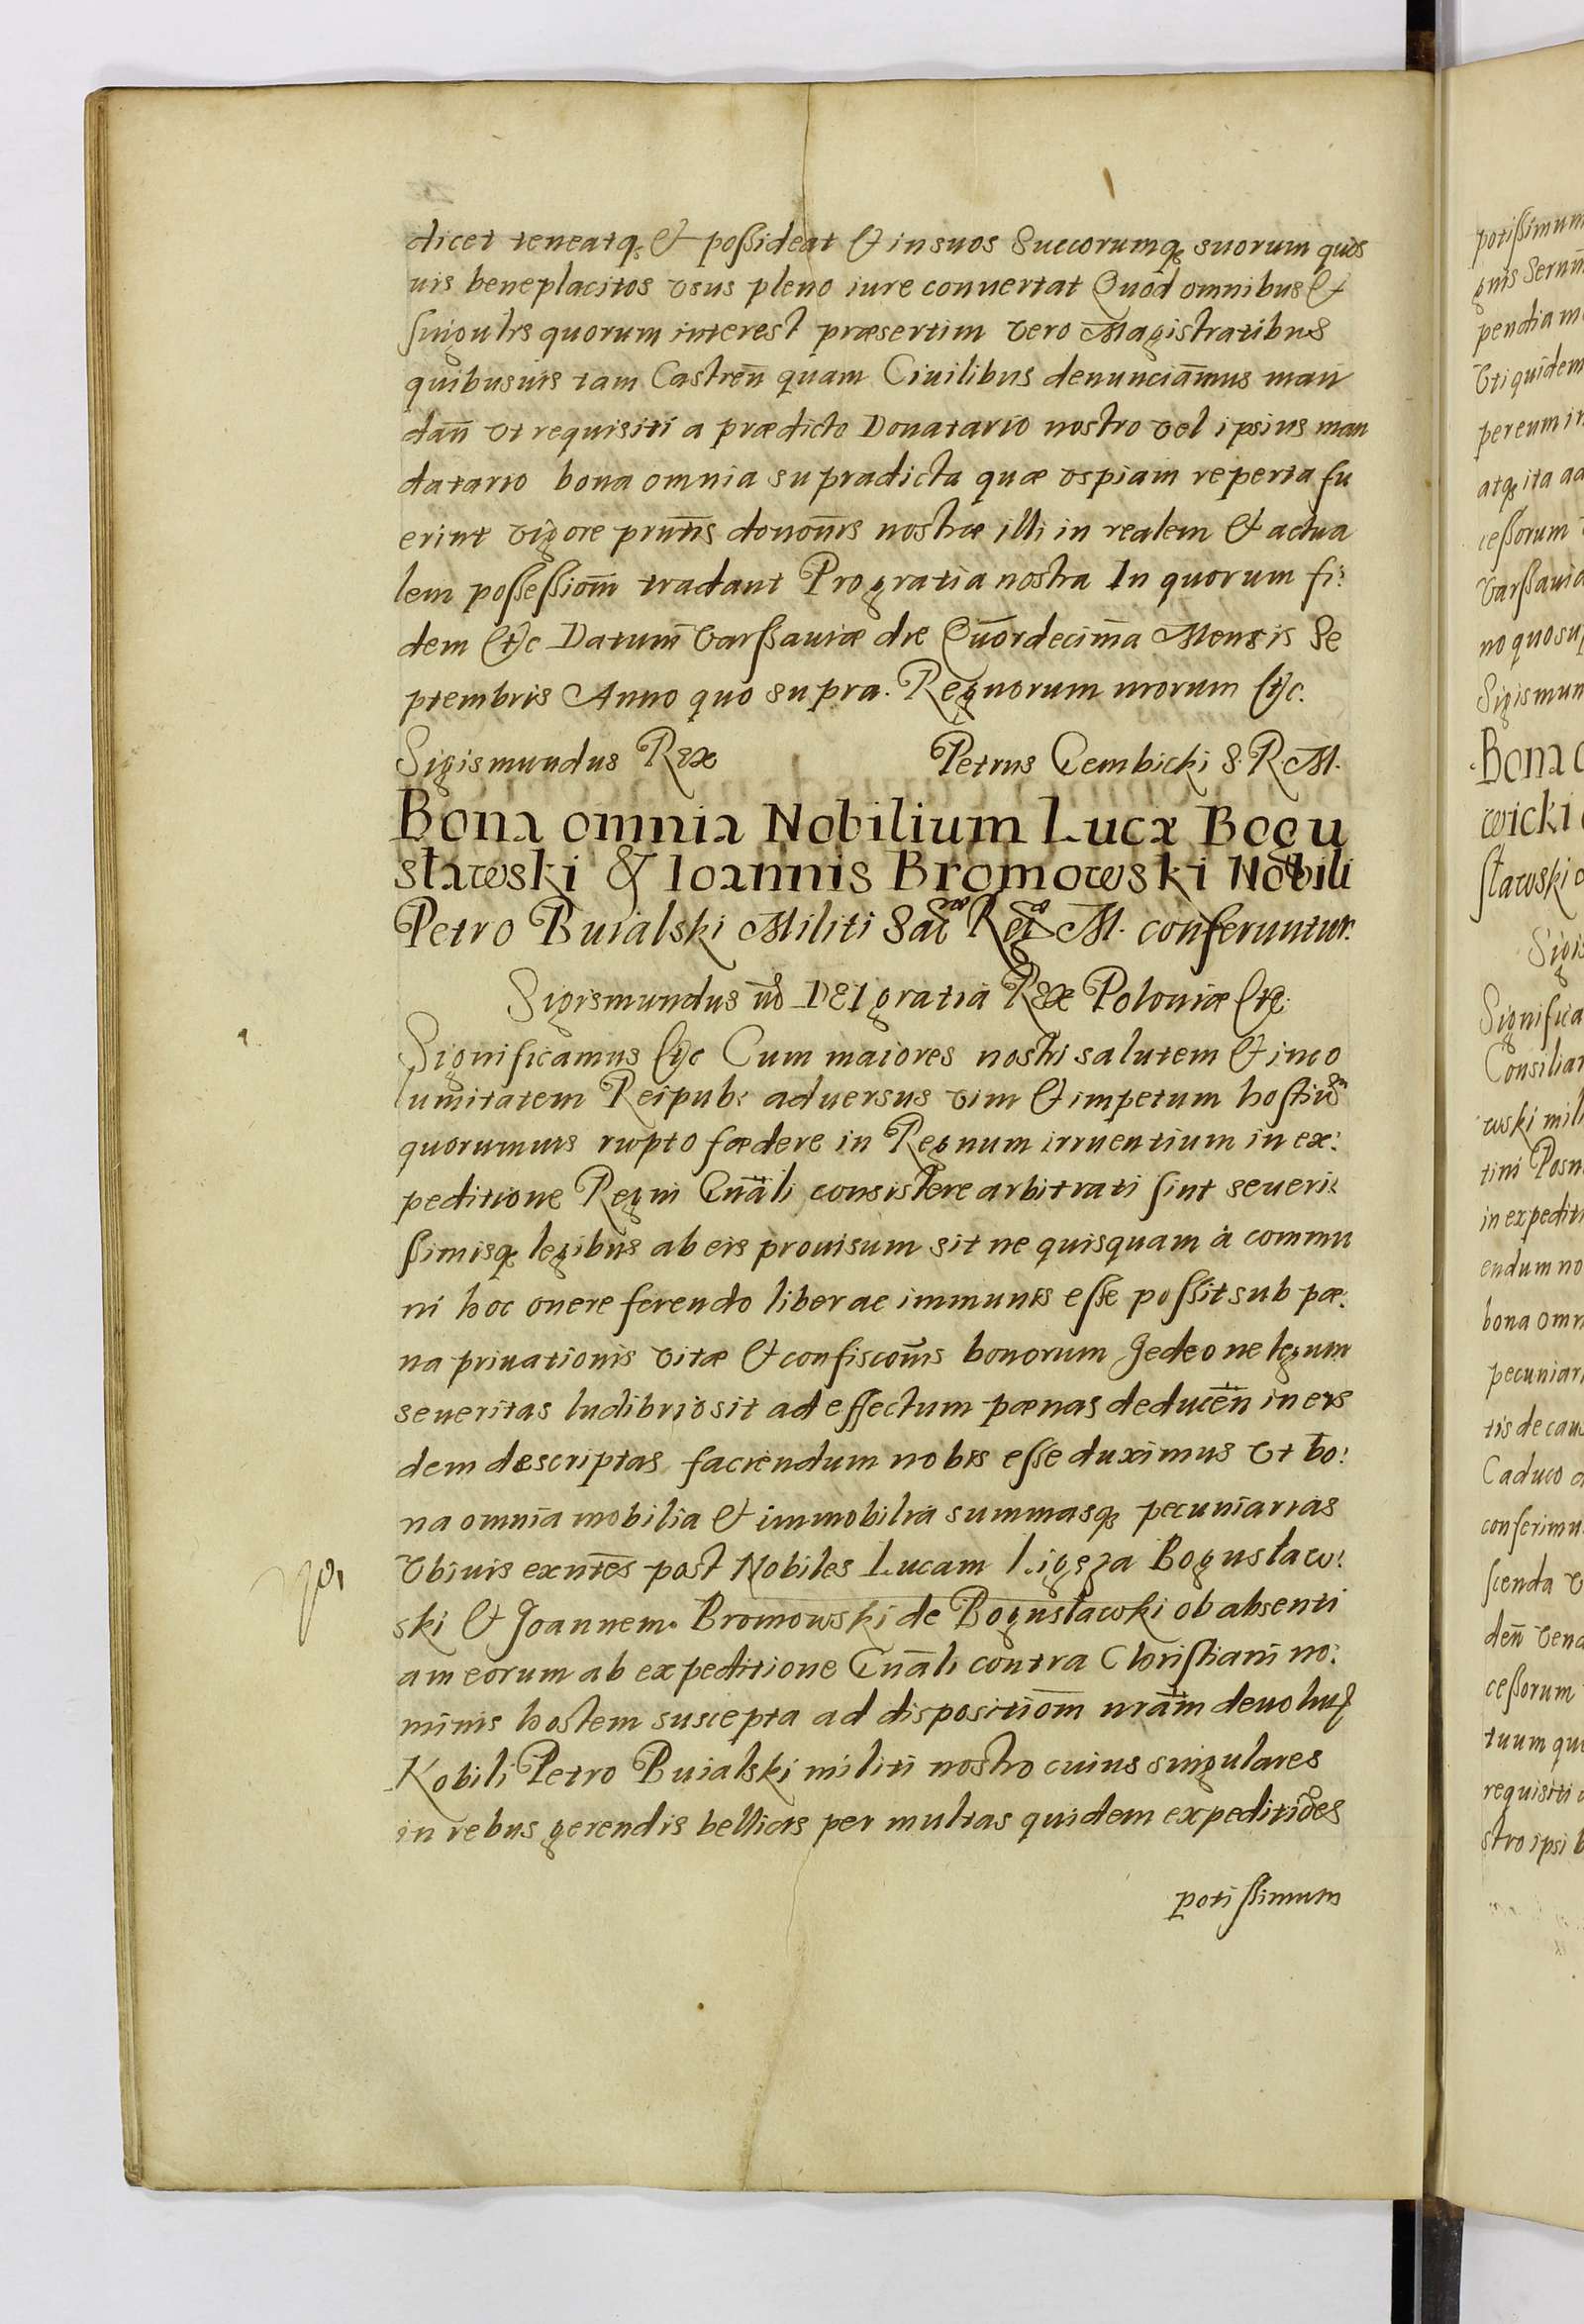 dicet teneatq; & possideat & in suos Succorumq; suorum quos
uis beneplacitos vsus pleno iure conuertat Quod omnibus &
singulis quorum interest præsertim vero Magistratibus
quibusuis tam Castren̄ quam Ciuilibus denunciam̄us man
dan̄ vt requisiti a prædicto Donatario nostro vel ipsius man
datario bona omnia supradicta quæ vspiam reperta fu
erint vigore prn̄tis donon̄is nostræ illi in realem & actua
lem possessiom̄ tradant Pro gratia nostra In quorum fi:
dem &c Datum Varssauiæ die Quordecima Mensis Se
ptembris Anno quo supra. Regnorum nrorum &c.
Sigismundus Rex Petrus Gembicki S. R. M.
Bona omnia Nobilium Lucæ Bogu
sławski & Ioannis Bromowski Nobili
Petro Buialski Militi Sac Reg M. conferuntur.
Sigismundus DEI gratia Rex Poloniæ &c.
Significamus &c Cum maiores nostri salutem & inco
lumitatem Reipub: aduersus vim & impetum hostium
quorumuis rupto fœdere in Regnum irruentium in ex:
peditione Regni Gnāli consistere arbitrati sint seueri:
ssimisq; legibus ab eis prouisum sit ne quisquam à commu
ni hoc onere ferendo liber ac immunis esse possit sub pœ:
na priuationis vitæ & confiscon̄is bonorum Ideo ne legum
seueritas ludibrio sit ad effectum pœnas deducen̄ in eis
dem descriptas faciendum nobis esse duximus vt bo:
na omnia mobilia & immobilia summasq; pecuniarias
Vbiuis exn̄tes post Nobiles Lucam Ligęza Bogusław:
ski & Joannem Bromowski de Bogusławki ob absenti
am eorum ab expeditione Gnāli contra Christiani no:
minis hostem suscepta ad dispositiom̄ nram̄ deuoluta
Nobili Petro Buialski militi nostro cuius singulares
in rebus gerendis bellicis per multas quidem expeditiões
potissimum